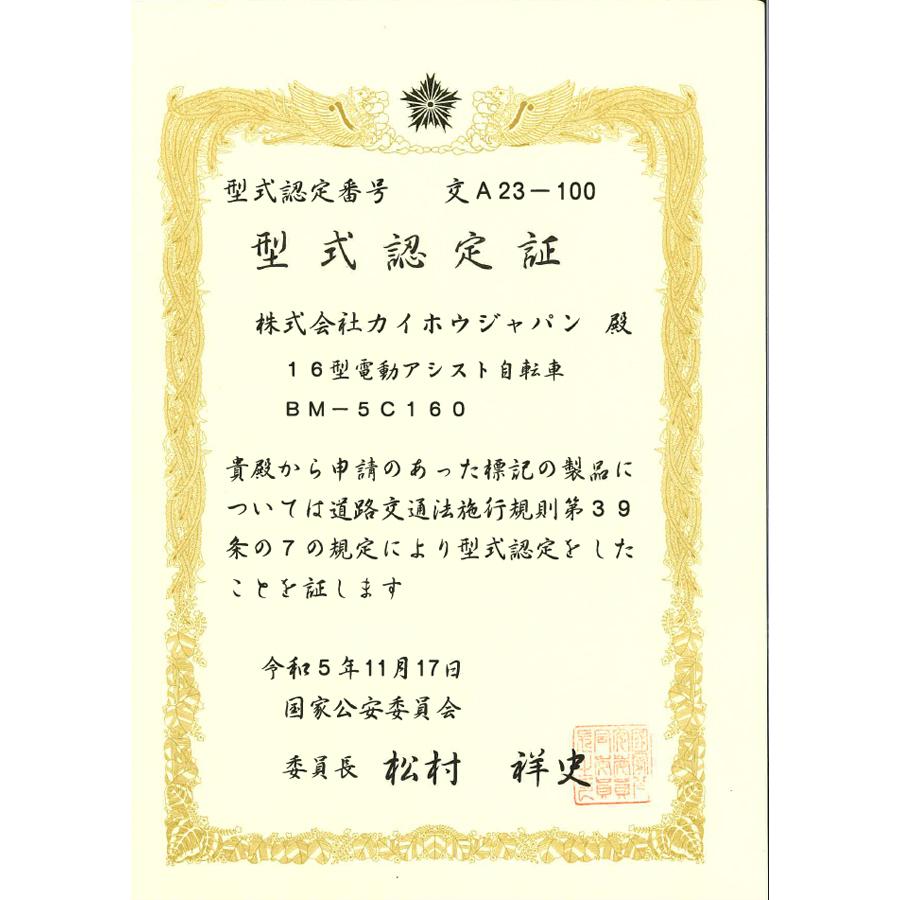 型式認定番号　文A23－100
型式認定証
株式会社カイホウジャパン　殿
１６型電動アシスト自転車
ＢＭ－５Ｃ１６０
貴殿から申請のあった標記の製品に
ついては道路交通法施行規則第３９
条の７の規定により型式認定をした
ことを証します
令和５年11月17日
国家公安委員会
委員長　松村　祥史